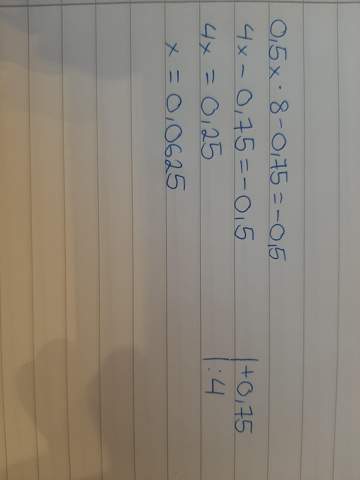 0,5x · 8 - 0,75 = -0,5
4x - 0,75 = -0,5 | +0,75
4x = 0,25 | :4
x = 0,0625